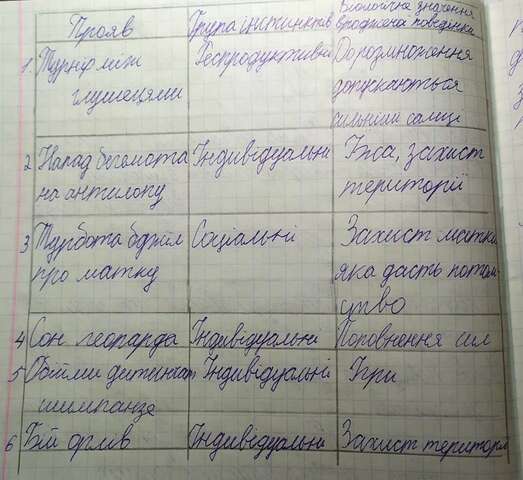 Прояв
Група інстинктів
Біологічне значення
вродженої поведінки
1. Турнір між
глушецями
Репродуктивні
До розмноження
допускаються
сильніши самці
2 Напад бегемота
на антилопу
Індивідуальні
Їжа, захист
території
3 Турбота бджіл
про матку
Соціальні
Захист матки
яка дасть потом-
ство
4 Сон леопарда
Індивідуальні
Поповнення сил
5 Обійми дитинчат
шимпанзе
Індивідуальні
Ігри
6 Бій орлів
Індивідуальні
Захист території